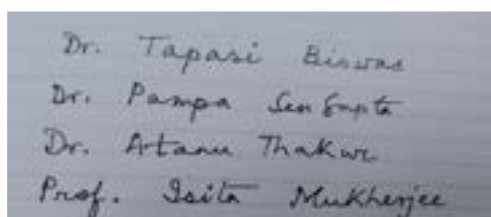 Dr. Tapasi Biswas
Dr. Pampa Sengupta
Dr. Atanu Thakur
Prof. Isita Mukherjee